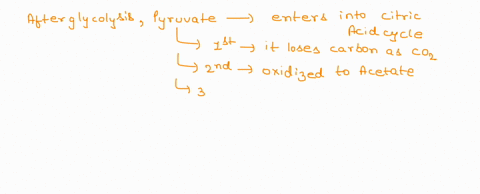 After glycolysis, Pyruvate → enters into citric
Acid cycle
1st → it loses carbon as CO2
2nd → oxidized to Acetate
3